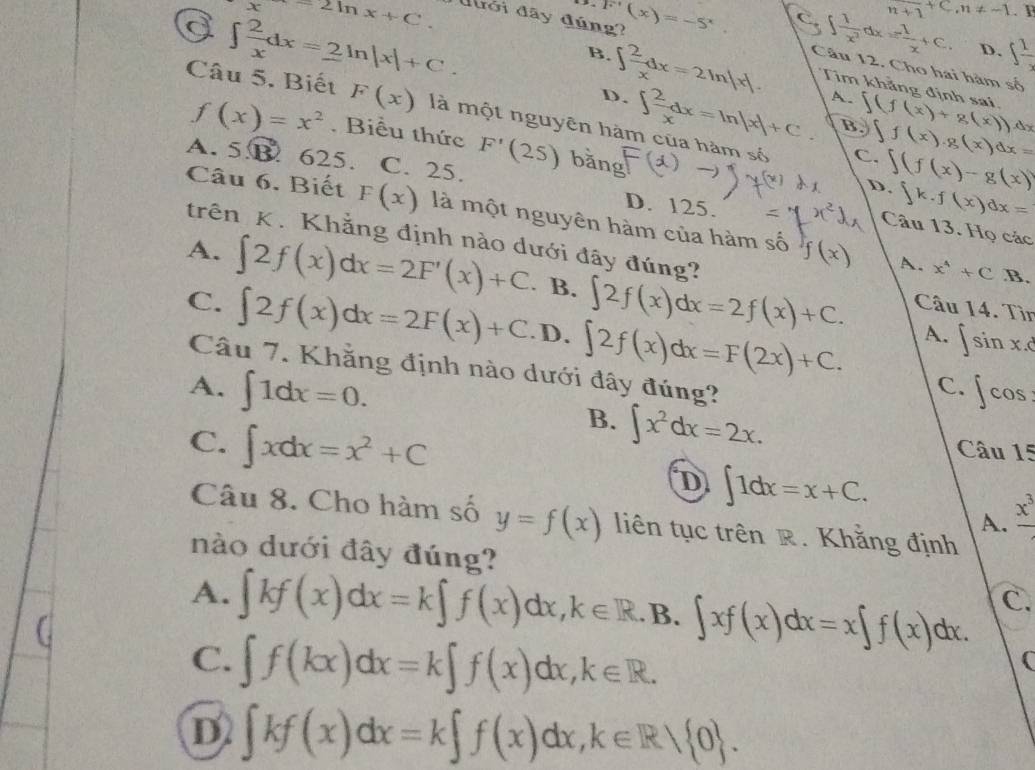 = 2 ln x + C.
C. ∫ 2/x dx = 2 ln|x| + C.
dưới đây đúng?
B. ∫ 2/x dx = 2 ln|x|.
D. ∫ 2/x dx = ln|x| + C.
Câu 5. Biết F(x) là một nguyên hàm của hàm số
f(x) = x². Biểu thức F'(25) bằng
F(x) → ∫ f(x) dx
= ∫ x² dx
A. 5. B. 625. C. 25. D. 125.
Câu 6. Biết F(x) là một nguyên hàm của hàm số f(x)
trên K. Khẳng định nào dưới đây đúng?
A. ∫2f(x)dx = 2F'(x) + C. B. ∫2f(x)dx = 2f(x) + C.
C. ∫2f(x)dx = 2F(x) + C. D. ∫2f(x)dx = F(2x) + C.
Câu 7. Khẳng định nào dưới đây đúng?
A. ∫1dx = 0.
B. ∫x²dx = 2x.
C. ∫xdx = x² + C
D. ∫1dx = x + C.
Câu 8. Cho hàm số y = f(x) liên tục trên ℝ. Khẳng định
nào dưới đây đúng?
A. ∫kf(x)dx = k∫f(x)dx, k ∈ ℝ. B. ∫xf(x)dx = x∫f(x)dx.
C. ∫f(kx)dx = k∫f(x)dx, k ∈ ℝ.
D. ∫kf(x)dx = k∫f(x)dx, k ∈ ℝ \ {0}.
F'(x) = -5ˣ.
n+1 + C, n ≠ -1.
C. ∫ 1/x² dx = 1/x + C. D. ∫ 1/
Câu 12. Cho hai hàm số
Tìm khẳng định sai.
A. ∫(f(x) + g(x)) dx
B. ∫f(x).g(x)dx =
C. ∫(f(x) - g(x))
D. ∫k.f(x)dx =
Câu 13. Họ các
A. x⁴ + C B.
Câu 14. Tìm
A. ∫sin x.d
C. ∫cos
Câu 15
A. x³
C.